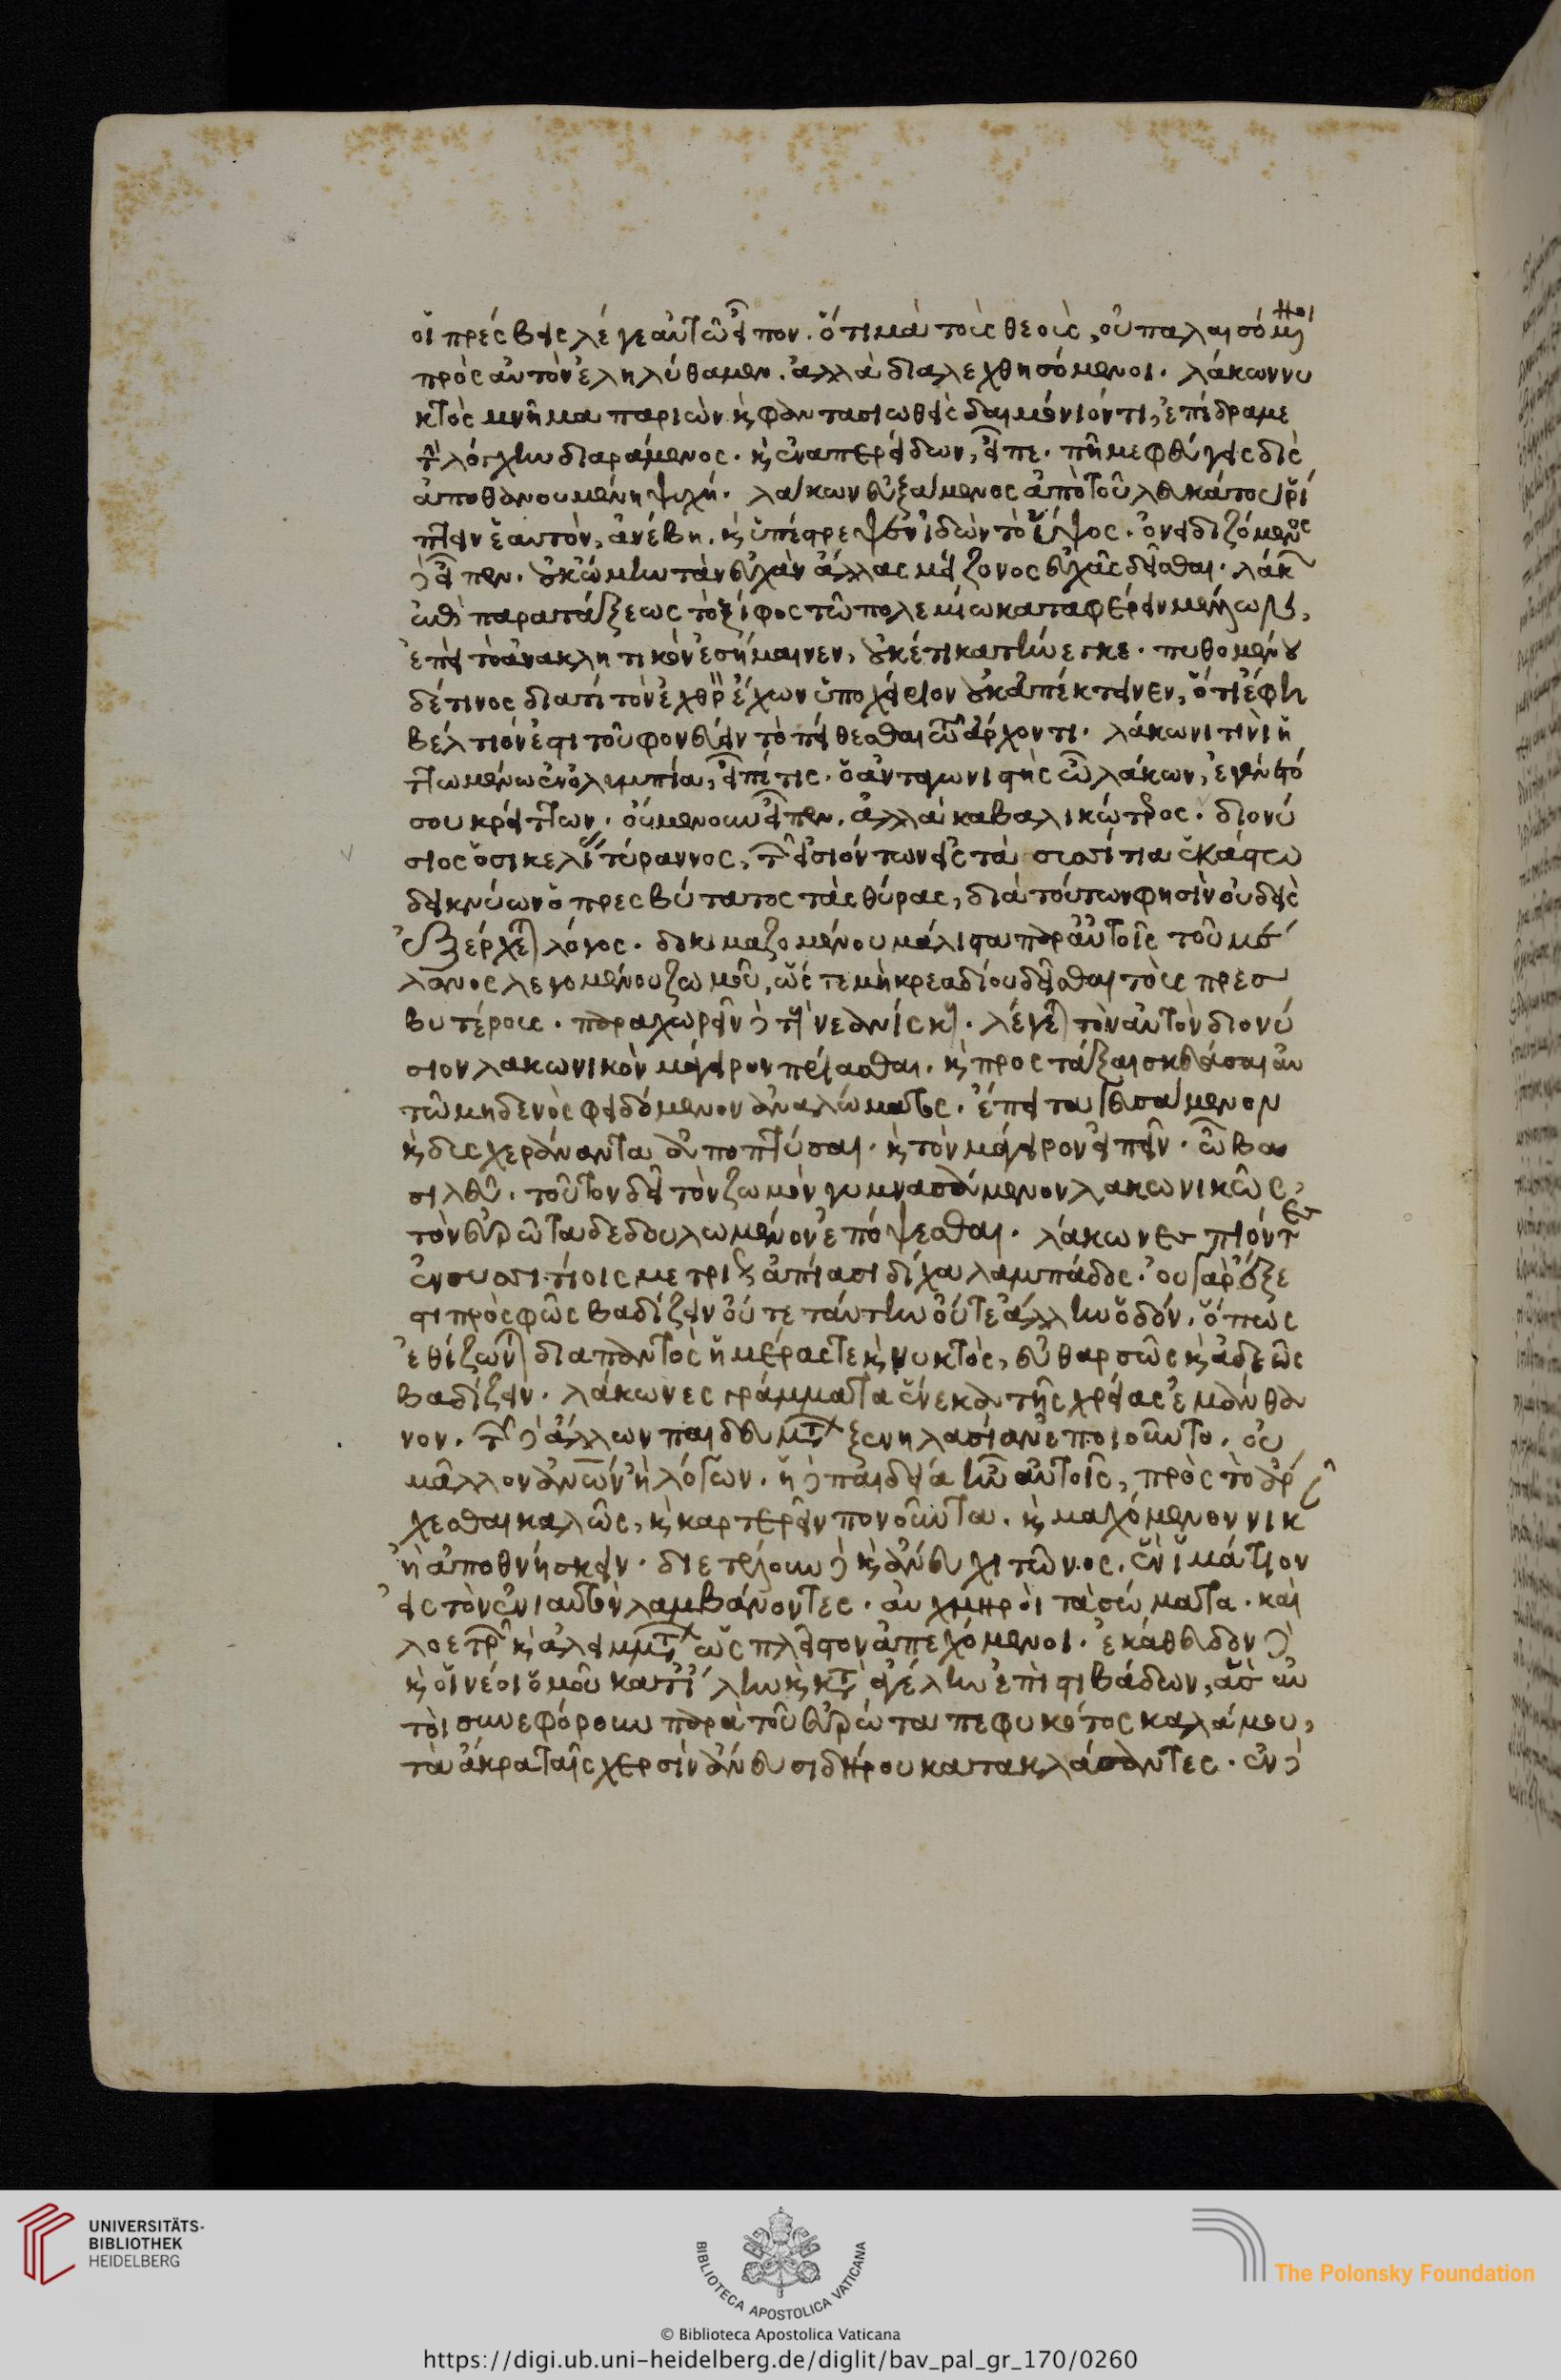 οἱ πρέσβεις λέγε αὐτῶ εἶπον. ὅτι μὰ τοὺς θεοὺς, οὐ παλαισόμενοι
πρὸς αὐτὸν ἐληλύθαμεν. ἀλλὰ διαλεχθησόμενοι. λάκων νυ
κτὸς μνῆμα παριὼν κ φαντασιωθεὶς δαιμόνιόν τι, ἐπέδραμε
τὴν λόγχην διαράμενος. κ ἐναπερείδων, εἶπε. πῆ με φεύγεις δὶς
ἀποθανουμένη ψυχή. λάκων εὐξάμενος ἀπὸ τοῦ λευκάτος ῥί
πτειν ἑαυτὸν, ἀνέβη. κ ὑπέστρεψεν ἰδὼν τὸ ὕψος. ὀνειδιζόμενος
δὲ εἶπεν. οὐκ ὤμην τὰν εὐχὰν ἄλλας μείζονος εὐχᾶς δεῖσθαι. λάκων
ἐπὶ παρατάξεως τὸ ξίφος τῶ πολεμίω καταφέρειν μέλλων,
ἐπεὶ τὸ ἀνακλητικὸν ἐσήμαινεν, οὐκέτι κατήνεγκε. πυθομένου
δέ τινος διατί τὸν ἐχθρὸν ἔχων ὑποχείριον οὐκ ἀπέκτεινεν, ὅτι ἔφη
βέλτιόν ἐστι τοῦ φονεύειν τὸ πείθεσθαι τῶ ἄρχοντι. λάκωνι τινὶ ἡ
ττωμένω ἐν ὀλυμπία, εἶπέ τις. ὁ ἀνταγωνιστὴς ὦ λάκων, ἐγένετό
σου κρείττων. οὐμενοῦν εἶπεν. ἀλλὰ καβαλικώτερος. διονύ
σιος ὁ σικελίας τύραννος, τῶν εἰσιόντων εἰς τὰ συσσίτια ἑκάστω
δεικνύων ὁ πρεσβύτατος τὰς θύρας, διὰ τούτων φησὶν οὐδεὶς
ἐξέρχεται λόγος. δοκιμαζομένου μάλιστα παρ αὐτοῖς τοῦ μέ
λανος λεγομένου ζωμοῦ, ὥστε μὴ κρεαδίου δεῖσθαι τοὺς πρεσ
βυτέρους. παραχωρεῖν δὲ τοῖς νεανίσκοις. λέγεται τὸν αὐτὸν διονύ
σιον λακωνικὸν μάγειρον πρίασθαι. κ προστάξαι σκευάσαι αὐ
τῶ μηδενὸς φειδόμενον ἀναλώματος. ἔπειτα γευσάμενον
κ δυσχεράναντα ἀποπτύσαι. κ τὸν μάγειρον εἰπεῖν. ὦ βα
σιλεῦ. τοῦτον δεῖ τὸν ζωμὸν γυμνασάμενον λακωνικῶς,
τὸν εὐρῶτα δεδουλωμένον ἐπόψεσθαι. λάκωνες πιόντες
ἐν συσσιτίοις μετρίως ἀπίασι δίχα λαμπάδος. οὐ γὰρ ἔξε
στι πρὸς φῶς βαδίζειν οὔτε ταύτην οὔτε ἄλλην ὁδόν. ὅπως
ἐθίζωνται διαπαντὸς ἡμέρας τε κ νυκτὸς, εὐθαρσῶς κ ἀδεῶς
βαδίζειν. λάκωνες γράμματα ἕνεκα τῆς χρείας ἐμάνθα
νον. τῶν δὲ ἄλλων παιδευμάτων ξενηλασίαν ἐποιοῦντο. οὐ
μᾶλλον ἀνων ἢ λόγων. ἡ δὲ παιδεία ἦν αὐτοῖς, πρὸς τὸ ἄρ
χεσθαι καλῶς, κ καρτερεῖν πονοῦντα. κ μαχόμενον νικᾶν
ἢ ἀποθνήσκειν. διετέλουν δὲ κ ἄνευ χιτῶνος. ἓν ἱμάτιον
εἰς τὸν ἐνιαυτὸν λαμβάνοντες. αὐχμηροὶ τὰ σώματα. καὶ
λοετρῶν κ ἀλειμμάτων ὡς πλεῖστον ἀπεχόμενοι. ἐκάθευδον δὲ
κ οἱ νέοι ὁμοῦ κατ ἴλην κ κατ ἀγέλην ἐπὶ στιβάδων, ἃς αὐ
τοὶ συνεφόρουν παρὰ τοῦ εὐρώτα πεφυκότος καλάμου,
τὰ ἄκρα ταῖς χερσὶν ἄνευ σιδήρου κατακλάσαντες. ἐν δὲ
UNIVERSITÄTS-
BIBLIOTHEK
HEIDELBERG
BIBLIOTECA APOSTOLICA VATICANA
The Polonsky Foundation
© Biblioteca Apostolica Vaticana
https://digi.ub.uni-heidelberg.de/diglit/bav_pal_gr_170/0260